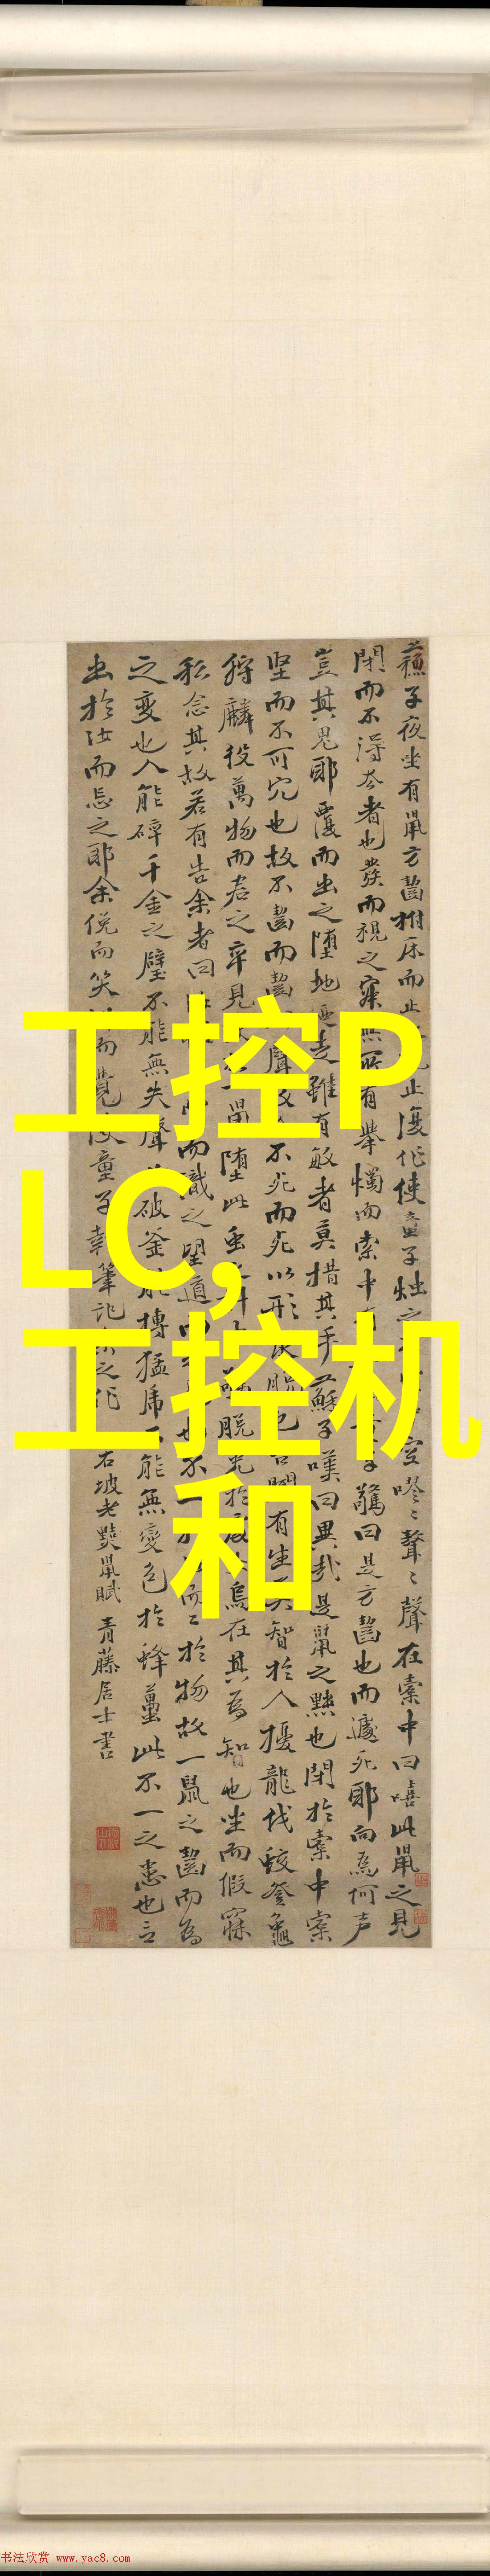 工控P
LC,
工控机
和
蘇子夜坐有鼠方齧拊床而止止復作使童子燭之空嘐〻聱〻聲在橐中曰嘻此鼠之見
閉而不得去者也發而視之寂無所有舉燭而索中驚曰是方齧也而遽死耶向為何声
豈其鬼耶覆而出之墮地走雖有敏者莫措其手蘇子嘆曰異哉是鼠之黠也閉於橐中橐
堅而不可穴也故不齧而齧聲不死而死以形有生莫智於人擾龍伐蛟登龜
狩麟役萬物而君之卒見鼠墮此虫脫兔於烏在其為智也坐而假寐
私念其故若有告余者曰而識之望道不一而二於物故一鼠之齧而為
之變也人能碎千金之璧不能無失聲破釜能搏猛虎能無變色於蜂蠆此不一之患也言
出於汝而忘之耶余俛而笑而覺使童子執筆記之作
右坡老黠鼠賦 青藤居士書
书法欣赏 www.yac8.com